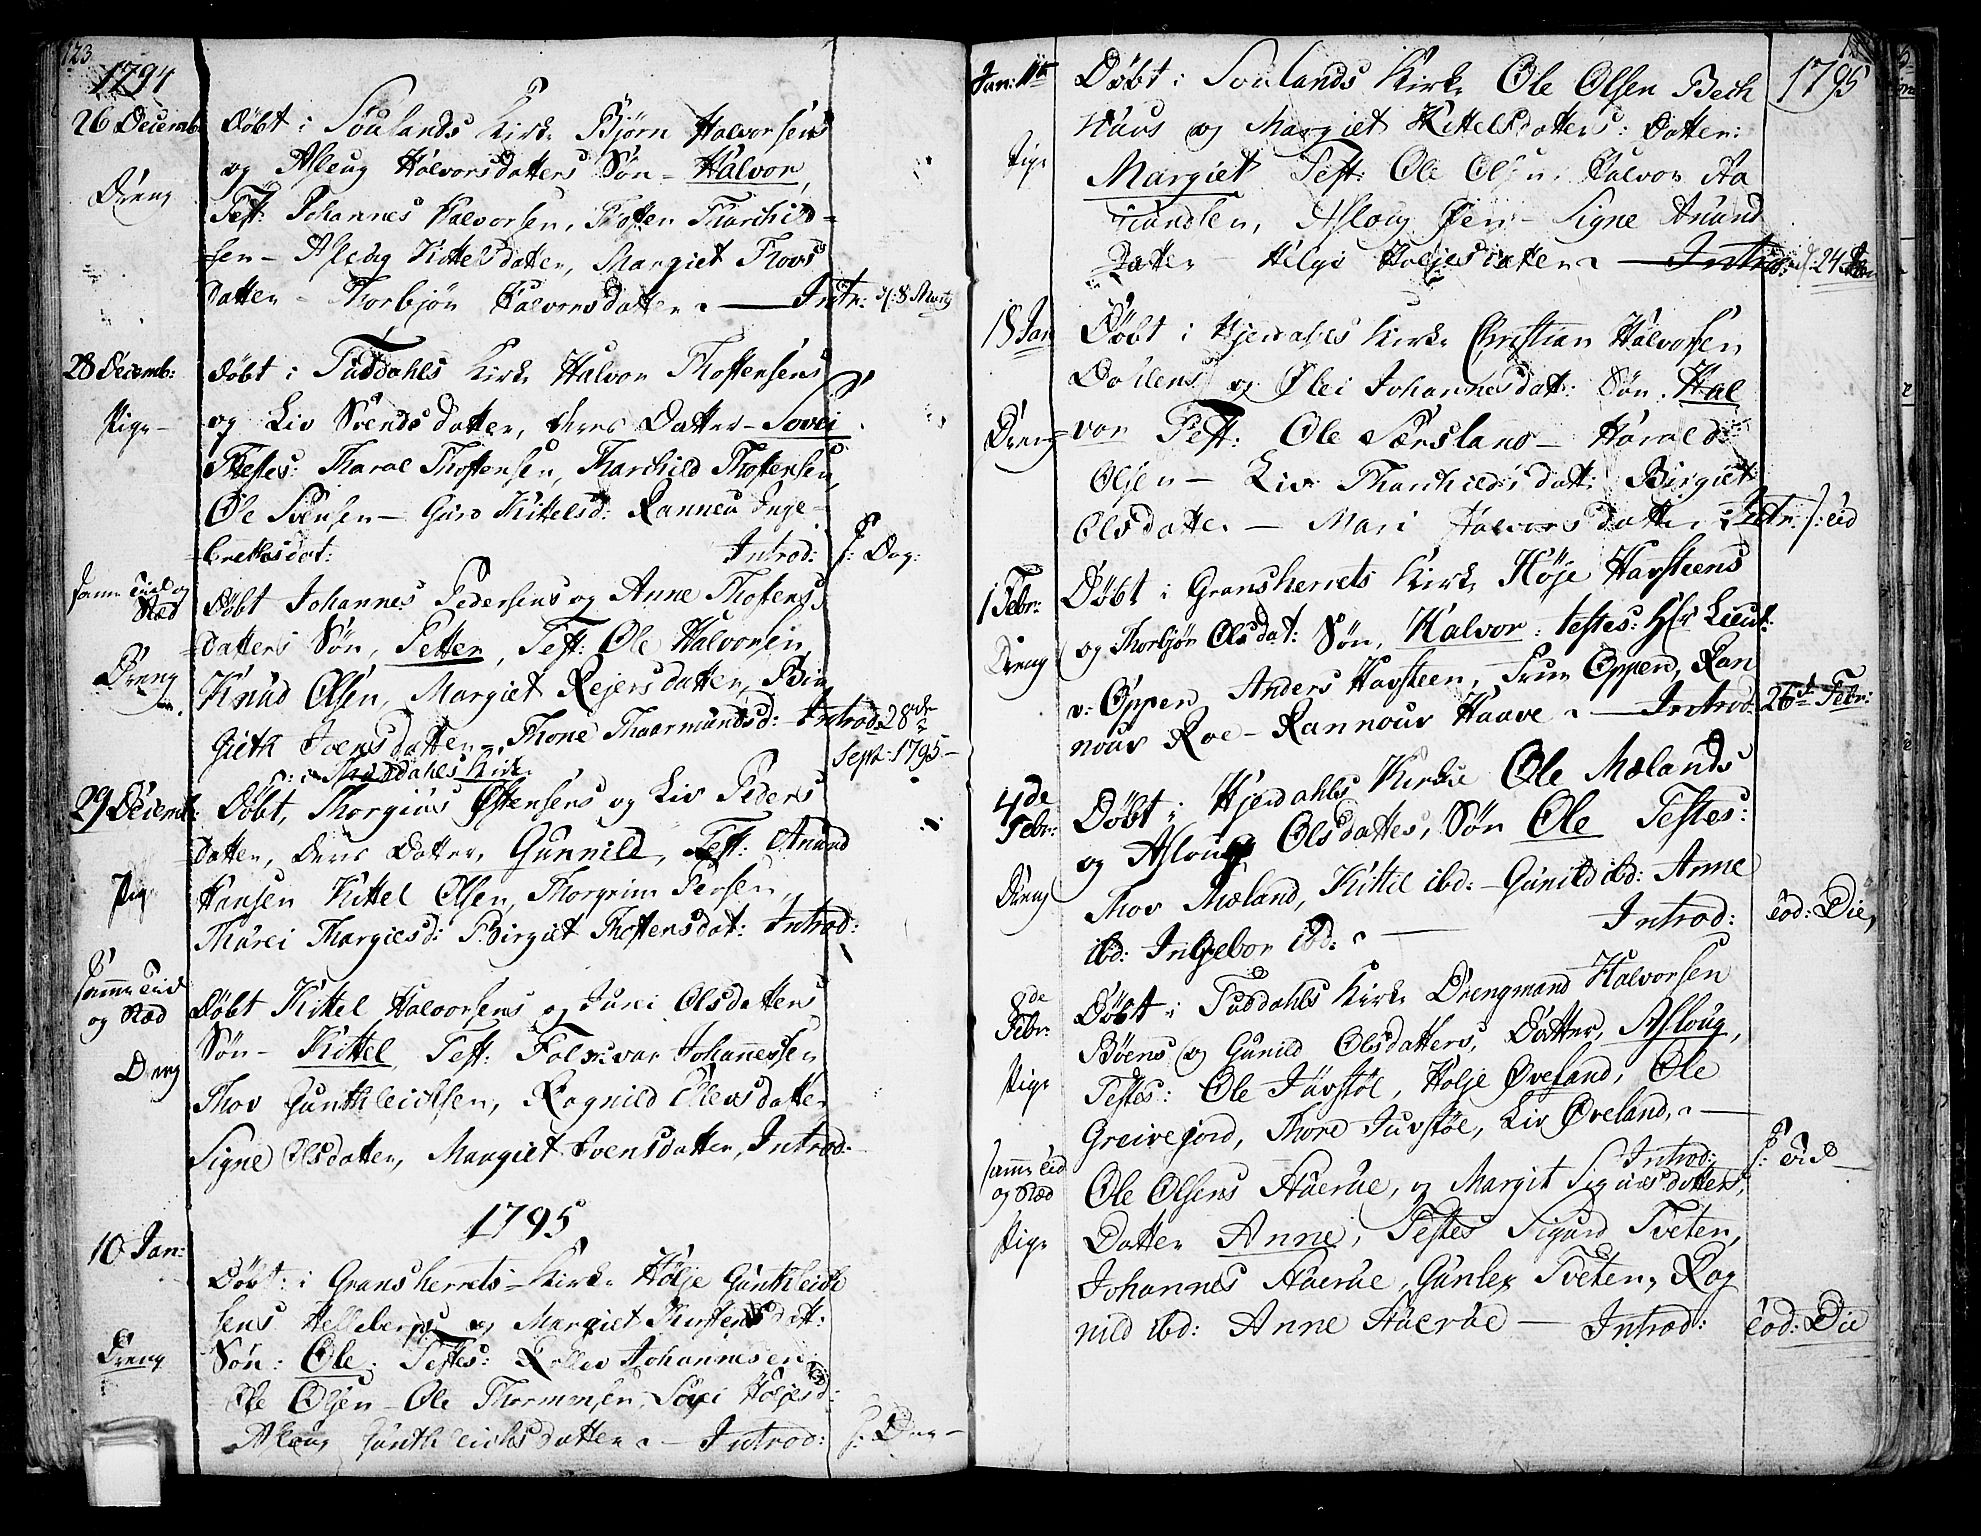 123
1794
26 Decemb:
Dreng
Døbt i Soulands Kirke Biørn Halvorsens
og Asleug Halvorsdatters Søn - Halvor,
Test: Johannes Halvorsen, Thosten Tharchild=
sen - Asleug Kittelsdatter, Margiet Thovs
Datter - Thorbjør Halvorsdatter. — Intr: d: 8 Marty
28 Decemb:
Pige -
Døbt i Tuddahls Kirke Halvor Thostensens
og Liv Svendsdatter, deres Datter - Sovei
Testes: Tharal Thostensen, Tharchild Thostensen,
Ole Svensen - Guro Kittelsd: Ranneu Inge-
brektsdat: Introd: s: Dag:
samme Tiid og
Stæd
Dreng
Døbt Johannes Pedersens og Anne Thostens
datters Søn, Petter, Test: Ole Halvorsen
Knud Olsen, Margiet Rejersdatter, Bir
gieth Joensdatter, Thone Thaarmundsd: Introd: 28de
Sept: 1795 -
i Tuddahls Kirke
29 Decemb:
Pige
Døbt, Thorgius Østensens og Liv Peders
datter, deres Datter, Gunnild, Test: Anund
Hansen Kittel Olsen, Thorgrim Persen,
Thurei Thorgiesd: Birgiet Thostensdat: Introd:
samme Tiid
og Stæd
Dreng
Døbt Kittel Halvorsens og Jurei Olsdatters
Søn - Kittel, Test: Folkvar Johannessen
Thov Gunthleichsen, Ragnild Olevsdatter
Signe Olsdatter, Margiet Svensdatter, Introd:
1795
10 Jan:
Dreng
Døbt: i Gransherrets - Kirke Hølje Gunthleich
sens Helleberg og Margiet Kostensdat:
Søn: Ole: Testes: Rollev Johannesen
Ole Olsen - Ole Thormonsen, Sovei Højesd:
Asloug Gunthleichsdatter. - Introd: s: Dag -
Jan: 11te
1795
Pige
Døbt: Soulands Kirke Ole Olsen Bech
huus og Margiet Kittelsdatters: Datter:
Margiet Test: Ole Olsen, Halvor Aa
mundsen, Asloug Øen - Signe Anund
Datter - Helgi Holjesdatter. — Introd: d: 24 Jan
18 Jan
Dreng
Døbt i Hjerdahls Kirke Christian Halvorsen
Dahlens og Ølei Johannesdat: Søn. Hal
vor Test: Ole Særsland - Harald
Olsen - Liv Tharchildsdatt: Birgiet
Olsdatter - Mari Halvorsdatter Intr: s: eid
1 Febr:
Dreng
Døbt i Gransherrets Kirke Høje Havsteens
og Thorbjør Olsdat: Søn, Halvor: testes: Hr Lieut:
v: Oppen, Anders Havsteen, Frue Oppen, Ran
nour Roe - Rannour Haave. — Introd: 26de Febr:
4de
Febr:
Dreng
Døbt i Hjerdahls Kirke Ole Mælands
og Asloug Olsdatters, Søn Ole Testes:
Thov Mæland, Kittil ibd: - Gunild ibd: Anne
ibd: Ingebor ibd: . — Introd: eod: Die,
8de
Febr:
Pige
Døbt i Tuddahls Kirke Drengmand Halvorsen
Bøens og Gunild Olsdatters, Datter, Asloug,
Testes: Ole Juvstøl, Holje Øveland, Ole
Greivejord, Thore Juvstøe, Liv Øveland, . —
Introd: s: eid
samme Tiid
og Stæd
Pige
Ole Olsens Haerue, og Margit Sigursdatters,
Datter Anne, Testes Sigurd Tveten,
Johannes Haerue, Gunley Tveten, Rag
nild ibd: Anne Haerue — Introd: eod: Die